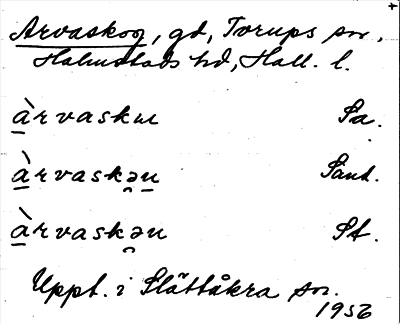 Arvaskog, gd, Torups sn,
Halmstads hd, Hall. l.
àrvasku Sa.
àrvaskəu Sant.
àrvaskəu St.
Uppt. i Slättåkra sn.
1956